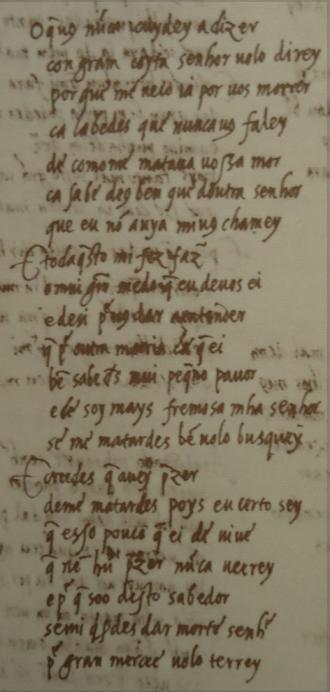 Oq̄ uꝯ nūca cuydey adizer
con gram coyta senhor uolo direy
por que me ueio ia por uos morrer
ca sabedes que nuncauꝯ faley
de comome mataua uossa mor
ca sabe deꝯ ben que doutra senhor
que eu nō auya miuꝯ chamey
E todaq̄sto mi fez fazer
o mui grā medo q̄ eu deuos ei
e desi p̄ uꝯ dar aentender
q̄ p̄ outra moiria de q̄ ei
bē sabedes mui peq̄no pauor
e des oy mays fremosa mha senhor
se me matardes bē uolo busquey
E creedes q̄ auerey p̄zer
deme matardes poys eu certo sey
q̄ esso pouco q̄ ei de uiuer
q̄ nē hūu p̄zer nūca ueerey
e p̄ q̄ soo desto sabedor
semi q̄s̄des dar morte senhʳ
p̄ gran mercee uolo terrey